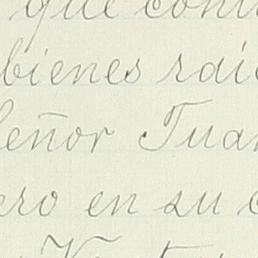 que cont
bienes raic
Señor Juan
ero en su c